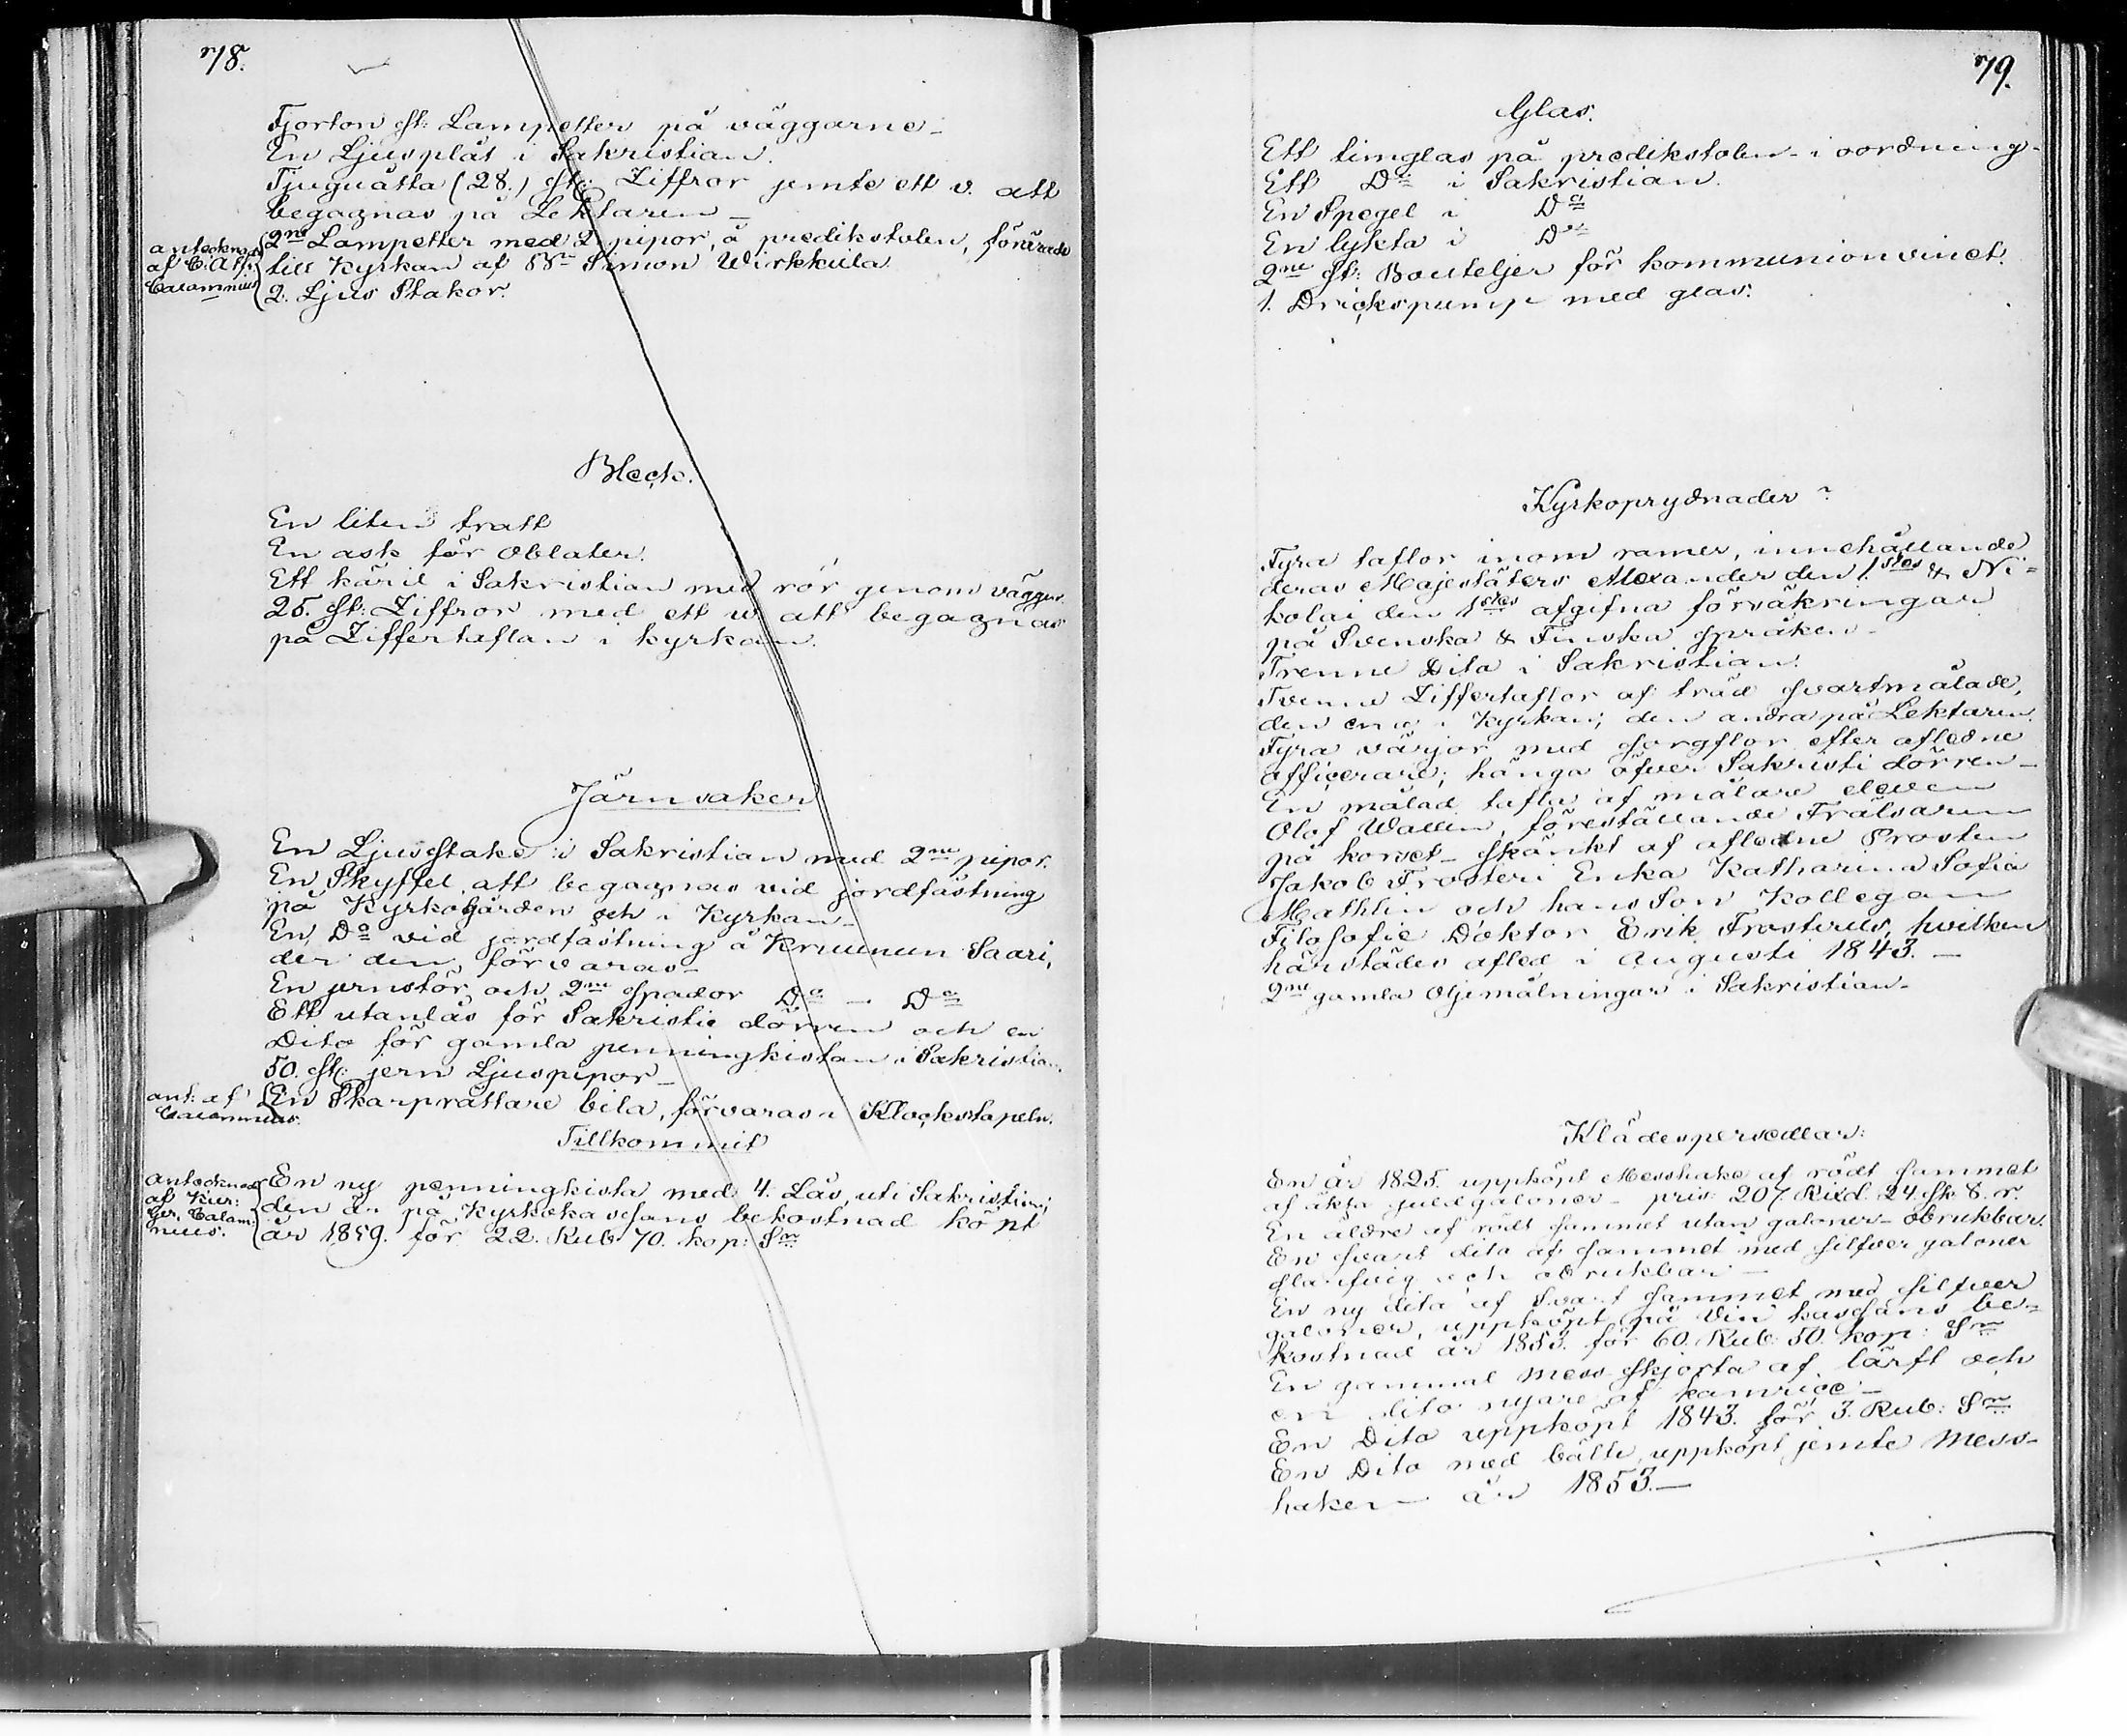 78.
Fjorton st: Lampetter på väggarne_
En Ljusplåt i Sakristian.
Tjuguåtta (28.) st: Ziffror jemte ett v. att
begagnas på Lektaren_
antecknadt
af C. A.
Calamnius
2ne Lampetter med 2 pipor, å predikstolen, förärade
till Kyrkan af Simon Wirkkula
2. Ljus Stakar.
Bleck.
En liten tratt
En ask för Oblater.
Ett käril i Sakristian med rör genom väggen
25. st: Ziffror med ett w att begagnas
på Ziffertaflan i kyrkan.
Järnsaker
En Ljusstake i Sakristian med 2ne pipor.
En Skyffel att begagnas vid jordfästning
på Kyrkogården och i Kyrkan_
En Do vid jordfästning å Kruunun Saari,
der den förvaras_
En jernstör och 2ne spador Do _ Do
Ett utanlås för Sakristie dörren och en
Dito för gamla penningkistan i Sakristian.
50. st: jern Ljuspipor_
ant: af
Calamnius.
En Skarprättare bila, förvaras i Klockstapeln.
Tillkommit
antecknadt
af
Calam-
nius.
En ny penningkista med 4. Lås, uti Sakristian;
den är på kyrkokassans bekostnad köpt
år 1859. för 22. Rub. 70. kop: Sr
79.
Glas.
Ett timglas på predikstolen_ i oordning.
Ett Do i Sakristian.
En Spegel i Do
En lykta i Do
2ne st: Bouteljer för kommunionvinet.
1. Drickspump med glas.
Kyrkoprydnader
Fyra taflor inom ramer, innehållande
deras Majestäters Alexander den 1.stes & Ni-
kolai den 1stes afgifna försäkringar
på Svenska & Finska språken_
Trenne Dito i Sakristian.
Tvenne Ziffertaflor af träd svartmålade,
den ena i kyrkan; den andra på Lektaren.
Fyra värjor med sorgflor efter aflidne
officerare; hänga öfver Sakristi dörren_
En målad tafla af målare eleven
Olof Wallin, föreställande Frälsaren
på korset_ skänkt af aflidne Prosten
Jakob Frosteri Enka Katharina Sofia
Mathlin och hans Son Kollegan
Filosofie Doktor Erik Frosterus, hvilken
härstädes afled i Augusti 1843. _
2ne gamla Oljemålningar i Sakristian_
Klädespersedlar:
En år 1825. uppköpt Messhake af rödt sammet
af äkta guldgaloner_ pris: 207 Rixd. 24. sk. 8. r.
En äldre af rödt sammet utan galoner_ obrukbar.
En svart dito af sammet med silfver galoner
och obrukbar _
En ny dito af Svart sammet med silfver
galoner, uppköpt på Vin kassans be-
kostnad år 1853. för 60. Rub. 50. kop: Sr
En gammal mess skjorta af lärft och
en dito nyare af
En Dito uppköpt 1843. för 3. Rub: Sr
En Dito med bälte, uppköpt jemte Mess-
haken år 1853._